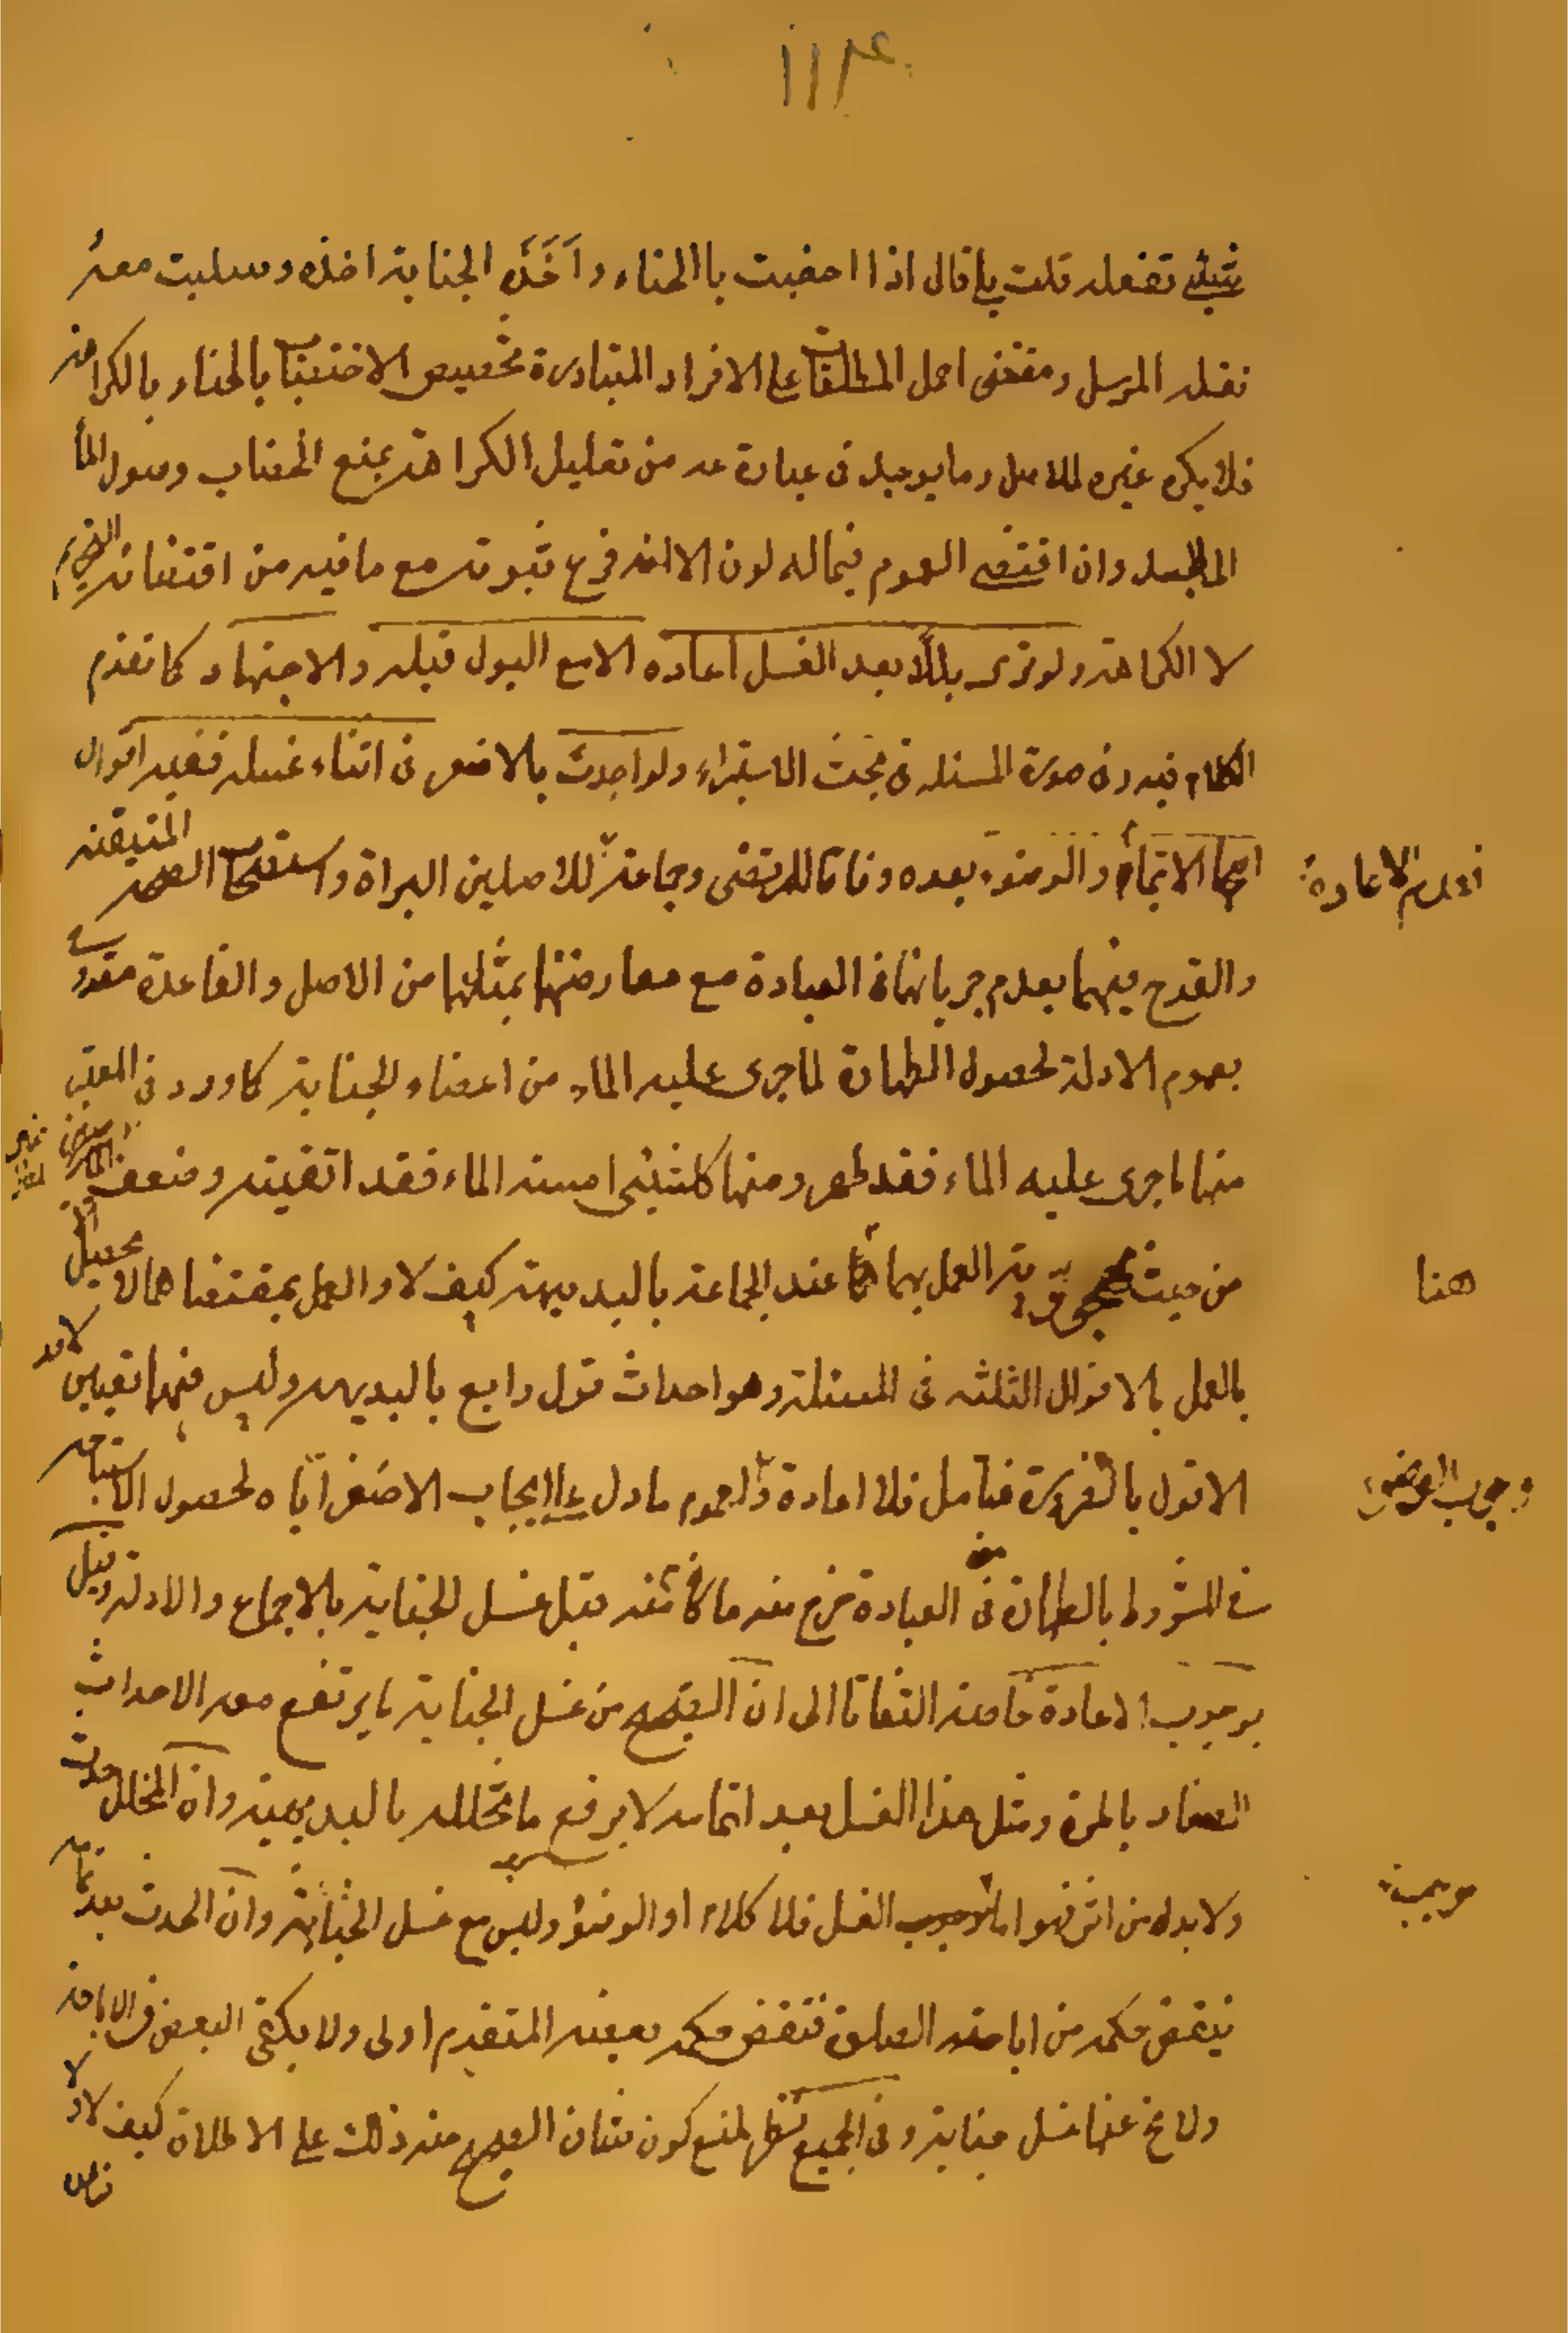 ١١٣
بشيئ تفعله قلت بلى قال اذا اختضبت بالحناء واَخَذَ الجنابة اخذه وسلبت معه
نقله المرسل ومقتضى احمل المطلقات على الافراد المتبادرة تخصيص الاختضاب بالحناء بالكراهة
فلا يكره غيره للاصل وما يوجد فى عبارة عد من تعليل الكراهة بمنع الخضاب وصول الماء
المحل وان اقتضى العموم فى ماله لون الا انه فرع ثبوته مع ما فيه من اقتضائه التحريم
لا الكراهة ولو ترى بللاً بعد الغسل اعاده الا مع البول قبله والاجتهاد كما تقدم
الكلام فيه وفى صورة المسئلة فى بحث الاستبراء ولو احدث بالاصغر فى اثناء غسله ففيه اقوال
اصحها الاتمام والوضوء بعده وفاقا للمرتضى وجماعة للاصلين البراة واستصحاب الصحة المتيقنة
فعدم الاعادة
والقدح فيهما بعدم جريانهما فى العبادة مع معارضتهما بمثلهما من الاصل والقاعدة مقدوح
بعموم الادلة لحصول الطهارة لما جرى عليه الماء من اعضاء الجنابة كما ورد فى المعتبر
منها ما جرى عليه الماء فقد طهر ومنها كل شيئ امسته الماء فقد انقيته وضعف
من حيث العمل بهما عند الجماعة بالبديهة كيف لا والعمل بمقتضاهما لا يحصل
هنا
بالعمل بالاقوال الثلثه فى المسئلة وهو احداث قول رابع بالبديهه وليس فيهما تعيين لاحد
الاقول بالضرورة فتامل فلا اعادة والعموم ما دل على ايجاب الاصغر اياه لحصول الاستباحه
وجوب الوضوء
فى المشروط بالطهارة فى العبادة خرج منه ما كان منه قبل غسل الجنابة بالاجماع والادلة وقيل
بوجوب الاعادة خاصة التفاتا الى ان الصحيح من غسل الجنابة ما يرتفع معه الاحداث
بالمرة ومثل هذا الغسل بعد اتمامه لا يرفع ما تخلله بالبديهية وان المخلل حدث
ولا بد له من اثر فهو اما لوجوب الغسل فلا كلام او الوضوء وليس مع غسل الجنابة وان الحدث بعد تمامه
موجب
ينقض حكمه من اباحته الصلوة فنقض حكم بعضه المتقدم اولى ولا يكفى البعض فى الاباحة
ولا يخ عنها غسل جنابة وفى الجميع نظر لمنع كون شان الصحيح منه ذلك على الاطلاق كيف لا ولا